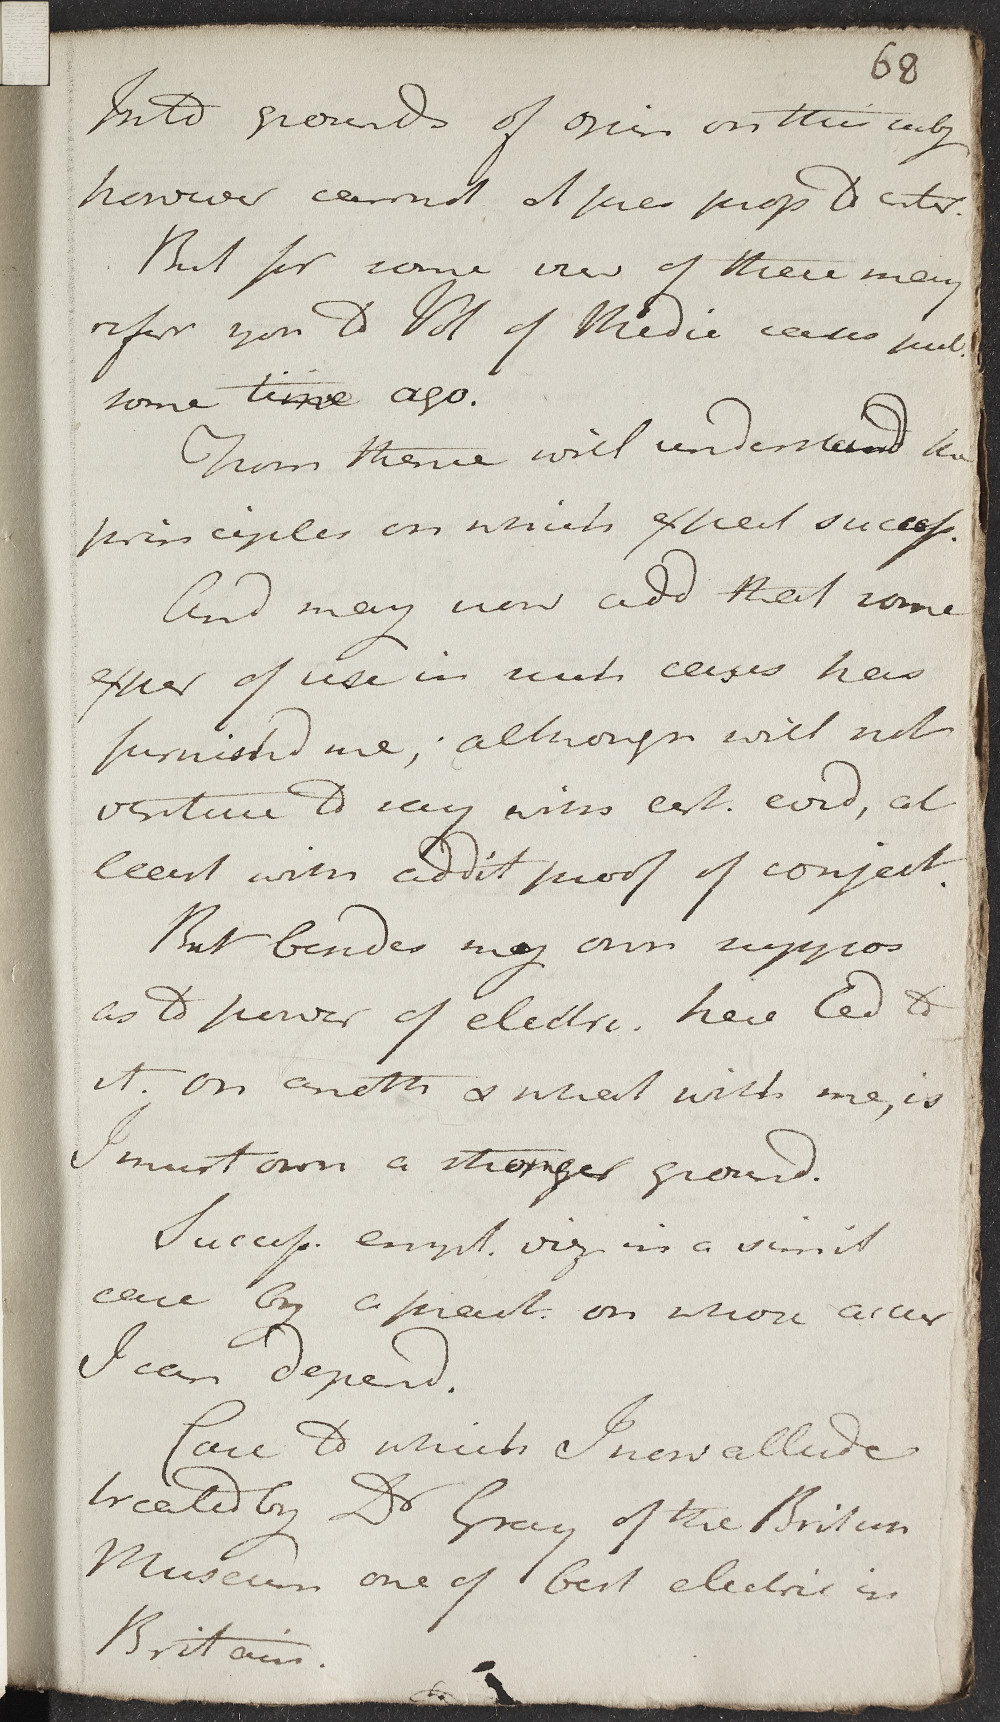 68
Into grounds of opin on this subj
however cannot at pres prop to enter.
But for some view of these may
refer you to Vol of Medic cases pub.
some time ago.
From these will understand the
principles on which expect success.
And may now add that some
exper of use in such cases has
furnishd me, although will not
venture to say with cert. evid, at
least with addit proof of conject.
But besides my own suppos
as to power of electric. here led to
it. on anoth & what with me, is
I must own a stronger ground.
Success. empl. viz in a simil
case by a pract. on whose accur
I can depend.
Case to which I now allude
treated by Dr Gray of the British
Museum one of best electric in
Britain.